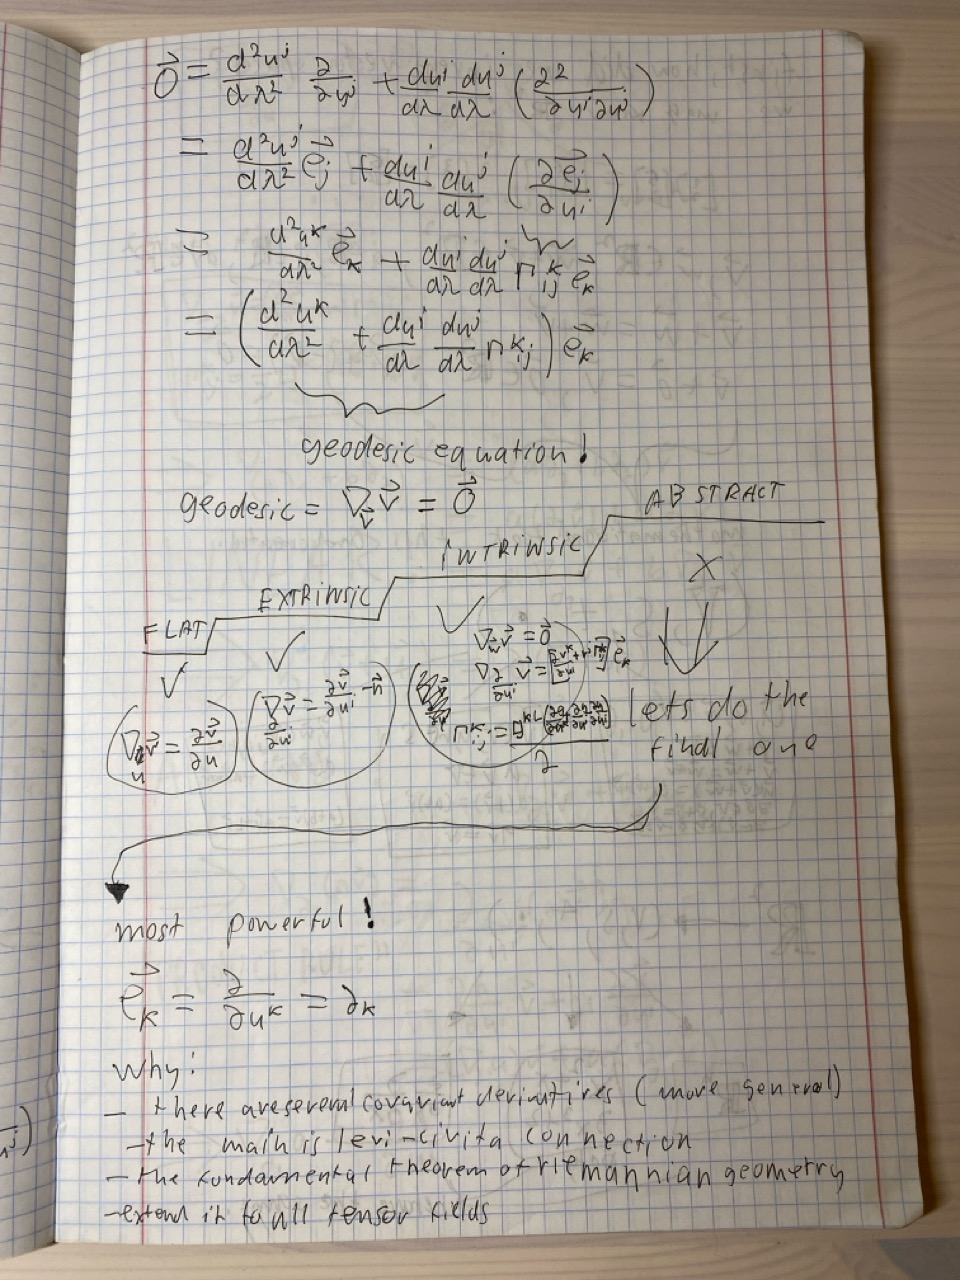 0⃗ = d²uʲ/dλ² ∂/∂uʲ + duⁱ/dλ duʲ/dλ (∂²/∂uⁱ∂uʲ)
= d²uʲ/dλ² e⃗ⱼ + duⁱ/dλ duʲ/dλ (∂e⃗ⱼ/∂uⁱ)
= d²uᵏ/dλ² e⃗ₖ + duⁱ/dλ duʲ/dλ Γᵏᵢⱼ e⃗ₖ
= (d²uᵏ/dλ² + duⁱ/dλ duʲ/dλ Γᵏᵢⱼ) e⃗ₖ
geodesic equation!
geodesic = ∇_v⃗ v⃗ = 0⃗
ABSTRACT
INTRINSIC
EXTRINSIC
FLAT
∇_w⃗ v⃗ = 0⃗
∇_∂/∂uⁱ v⃗ =
e⃗ₖ
∇_∂/∂uⁱ v⃗ = ∂v⃗/∂uⁱ - n⃗
v⃗ = ∂v⃗/∂u
Γᵏᵢⱼ =
2
lets do the
final one
most powerful!
e⃗ₖ = ∂/∂uᵏ = ∂ₖ
Why:
- there are several covariant derivatives (more general)
- the main is levi-civita connection
- the fundamental theorem of riemannian geometry
- extend it to all tensor fields